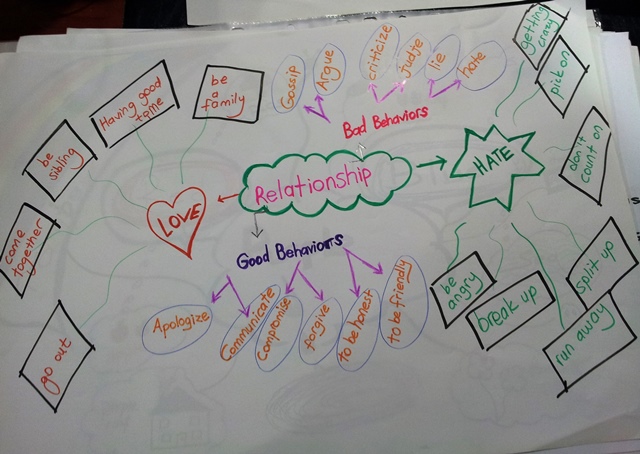 Gossip
Argue
criticize
judje
lie
hate
getting
crazy
pick on
be
a
family
Having good
time
be
sibling
Bad Behaviors
don't
count on
HATE
Relationship
LOVE
come
together
Good Behaviours
go out
Apologize
Communicate
Compromise
forgive
to be honest
to be friendly
be
angry
break up
split up
run away